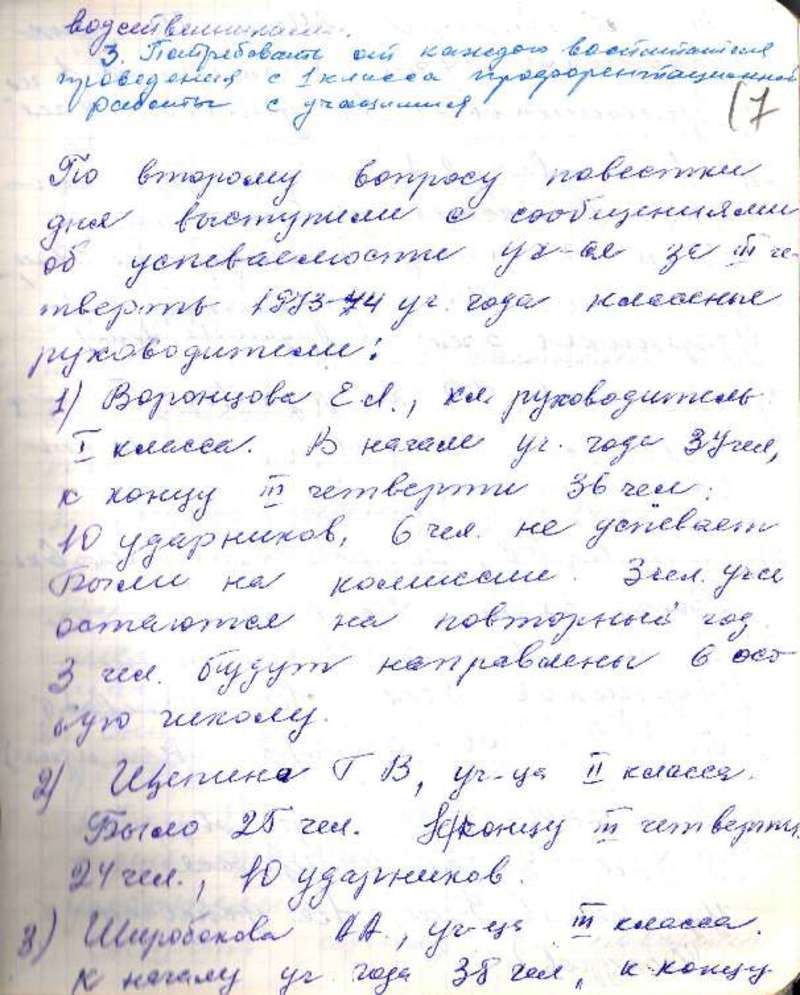 водственниками.
3. Потребовать от каждого воспитателя
проведения с 1 класса профориентационной
работы с учащимися
17
По второму вопросу повестки
дня выступили с сообщениями
об успеваемости уч-ся за III че-
тверть 1973-74 уч. года классные
руководители:
1) Воронцова Е.А., кл. руководитель
I класса. В начале уч. года 37 чел,
к концу III четверти 36 чел.
10 ударников, 6 чел. не успевает
Были на комиссии. 3 чел.
остаются на повторный год
3 чел. будут направлены в осо-
бую школу.
2) Щепина Г В, уч-ца II класса.
Было 25 чел. К концу III четверти
24 чел., 10 ударников.
3) Широбокова А.А., уч-ца III класса.
к началу уч. года 38 чел., к концу